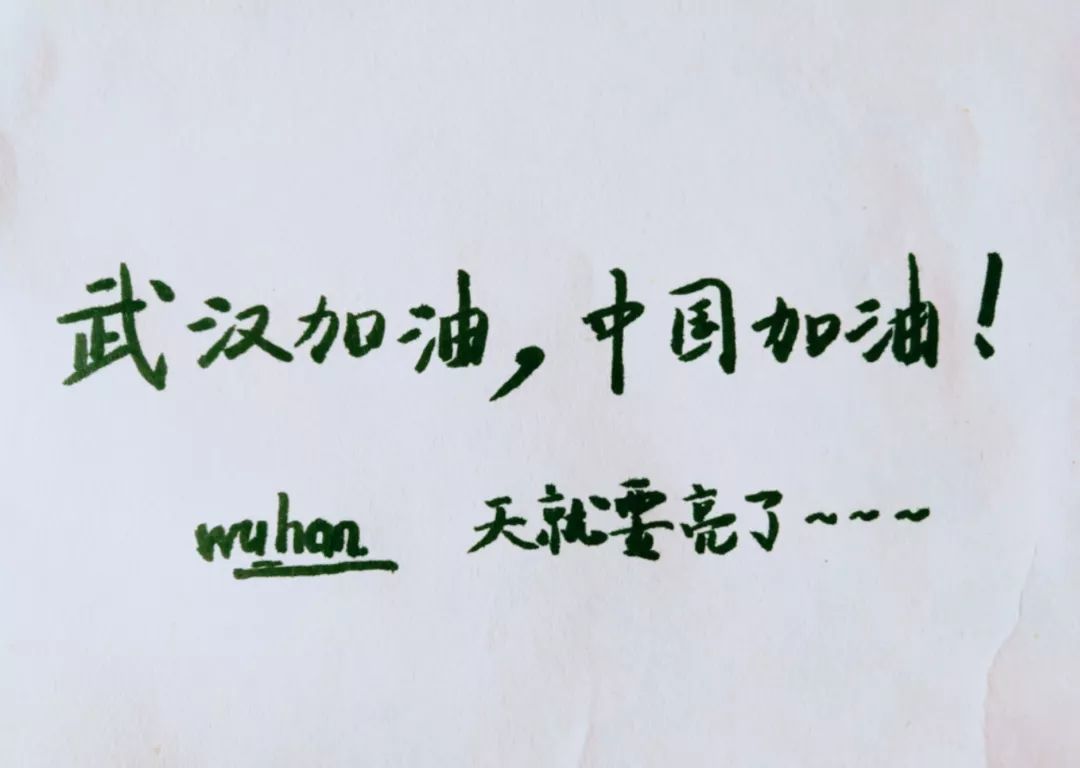 武汉加油，中国加油！
wuhan 天就要亮了~~~~